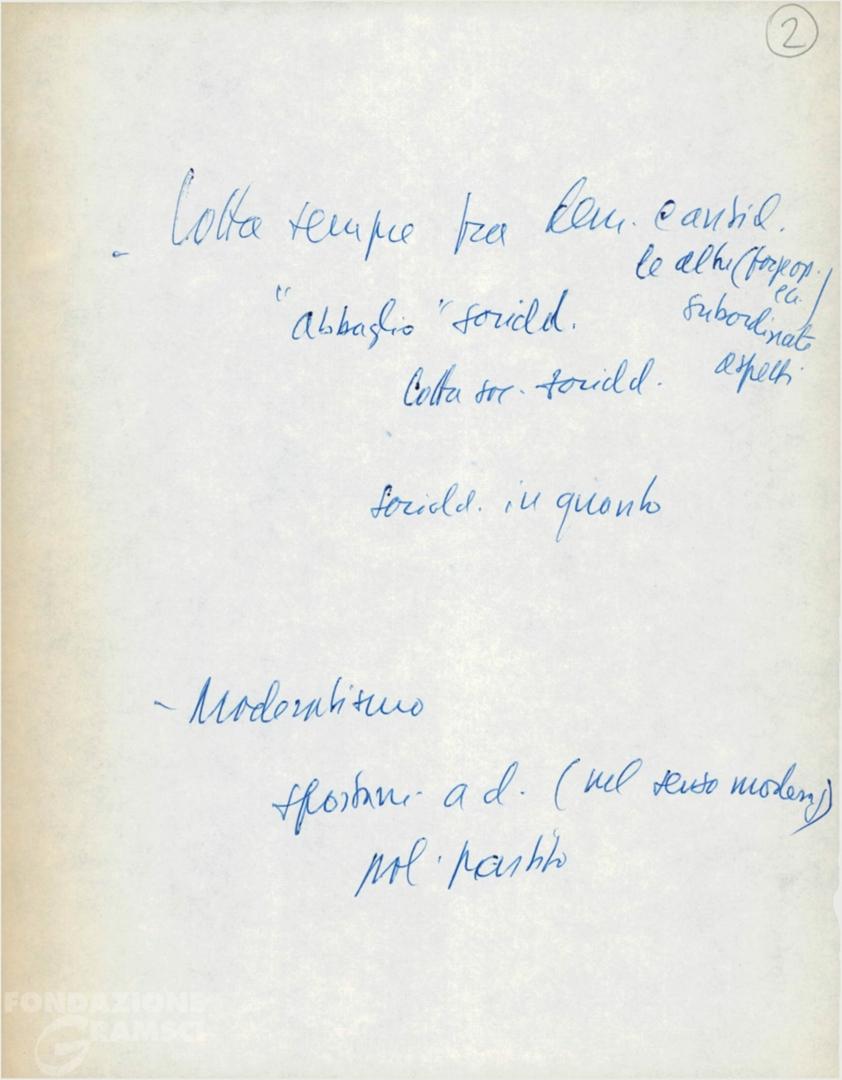 2
- Lotta sempre fra dem. e antid.
le altre (forze op. ecc.)
subordinate
aspetti
"abbaglio" sociald.
lotta soc. sociald.
sociald. in quanto
- Moderatismo
spostam. a d. (nel senso moder.)
pol. partito
FONDAZIONE
GRAMSCI